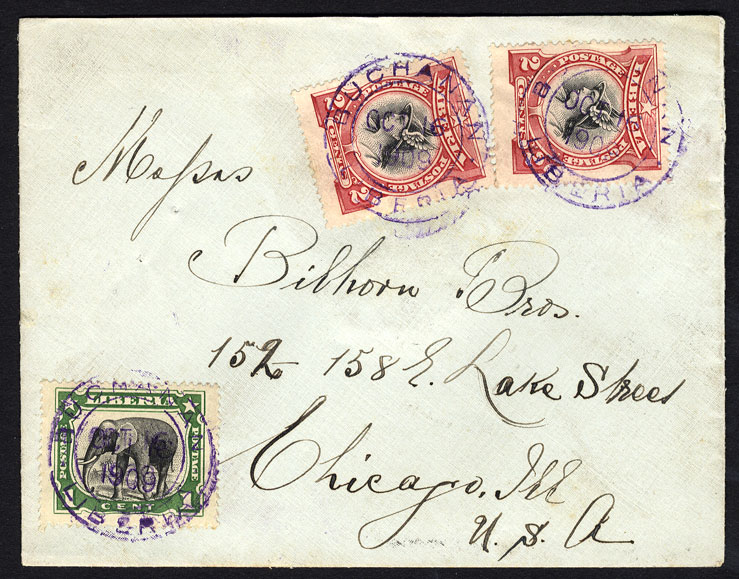 BUCHANAN
OCT 16
1909
LIBERIA
LIBERIA
POSTAGE
2 CENTS 2
BUCHANAN
OCT
190
LIBERIA
LIBERIA
POSTAGE
2 CENTS 2
Messrs
Bilhorn Bros.
152 158 E. Lake Street
Chicago, Ill
U. S. A.
BUCHANAN
LIBERIA
POSTAGE
OCT 16
1909
1 CENT 1
LIBERIA